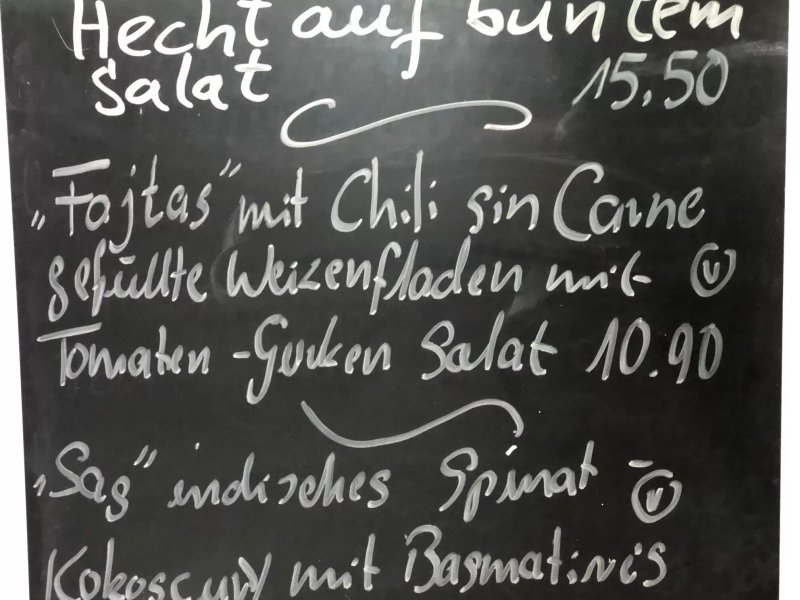 Hecht auf buntem
Salat 15,50
„Fajtas" mit Chili sin Carne
gefüllte Weizenfladen mit Ⓥ
Tomaten-Gurken Salat 10.90
„Sag" indisches Spinat- Ⓥ
Kokoscurry mit Basmatireis